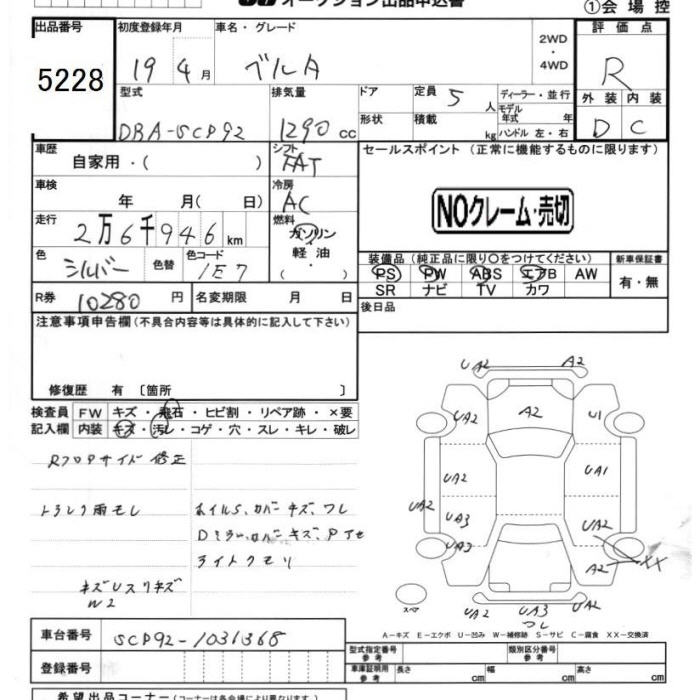 オークション出品申込書
①会場控
出品番号 5228
初度登録年月 19 4月
車名・グレード ベルタ
2WD・4WD
評価点 R
外装 D 内装 C
型式 DBA-SCP92
排気量 1290 cc
ドア
形状
定員 5 人
積載 kg
ディーラー・並行
モデル年式 年
ハンドル 左・右
車歴 自家用・( )
シフト FAT
セールスポイント (正常に機能するものに限ります)
車検 年 月( 日)
冷房 AC
NOクレーム・売切
走行 2万6千946 km
燃料 ガソリン 軽油・( )
色 シルバー 色替
色コード 1E7
装備品(純正品に限り○をつけてください)
PS PW ABS エアB AW
SR ナビ TV カワ
新車保証書 有・無
R券 10280 円
名変期限 月 日
後日品
注意事項申告欄(不具合内容等は具体的に記入して下さい)
修復歴 有 〔箇所 〕
検査員記入欄
FW キズ・飛石・ヒビ割・リペア跡・×要
内装 キズ・汚レ・コゲ・穴・スレ・キレ・破レ
Rフロアサイド修正
トランク雨モレ
ホイルS、カバーキズ、ワレ
Dミラー、カバーキズ、Pアセ
ライトクモリ
キズUスリキズ
W2
UA2 A2
UA2 A2 U1
UA2 UA1
UA2 UA2
UA3 UA2
UA3 A2 XX
スペア
UA2 UA3 UA2
コレ
A－キズ E－エクボ U－凹み W－補修跡 S－サビ C－腐食 XX－交換済
車台番号 SCP92-1031368
登録番号
型式指定番号 参考
類別区分番号 参考
車庫証明用 参考 長さ cm 幅 cm 高さ cm
希望出品コーナー(コーナーは各会場により異なります)